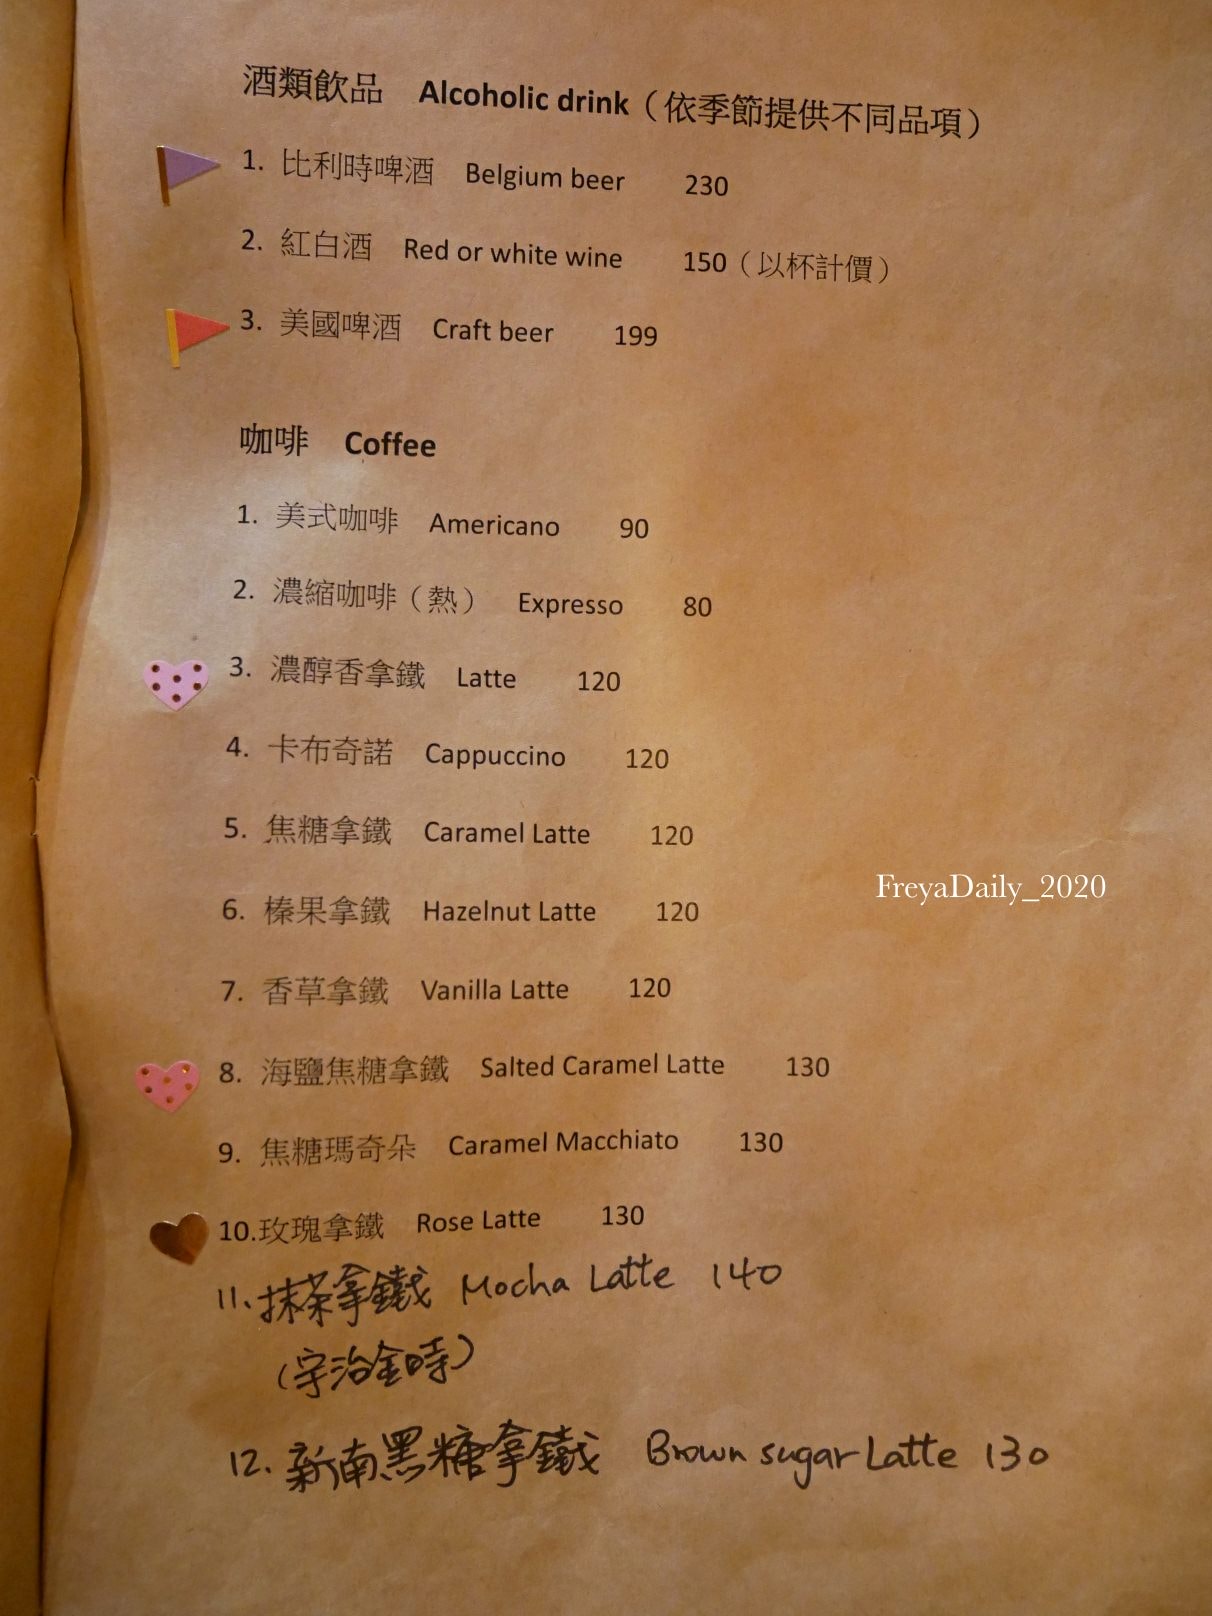 酒類飲品 Alcoholic drink（依季節提供不同品項）
1. 比利時啤酒 Belgium beer 230
2. 紅白酒 Red or white wine 150（以杯計價）
3. 美國啤酒 Craft beer 199
咖啡 Coffee
1. 美式咖啡 Americano 90
2. 濃縮咖啡（熱） Expresso 80
3. 濃醇香拿鐵 Latte 120
4. 卡布奇諾 Cappuccino 120
5. 焦糖拿鐵 Caramel Latte 120
FreyaDaily_2020
6. 榛果拿鐵 Hazelnut Latte 120
7. 香草拿鐵 Vanilla Latte 120
8. 海鹽焦糖拿鐵 Salted Caramel Latte 130
9. 焦糖瑪奇朵 Caramel Macchiato 130
10.玫瑰拿鐵 Rose Latte 130
11.抹茶拿鐵 Mocha Latte 140
（宇治金時）
12. 新南黑糖拿鐵 Brown sugar Latte 130